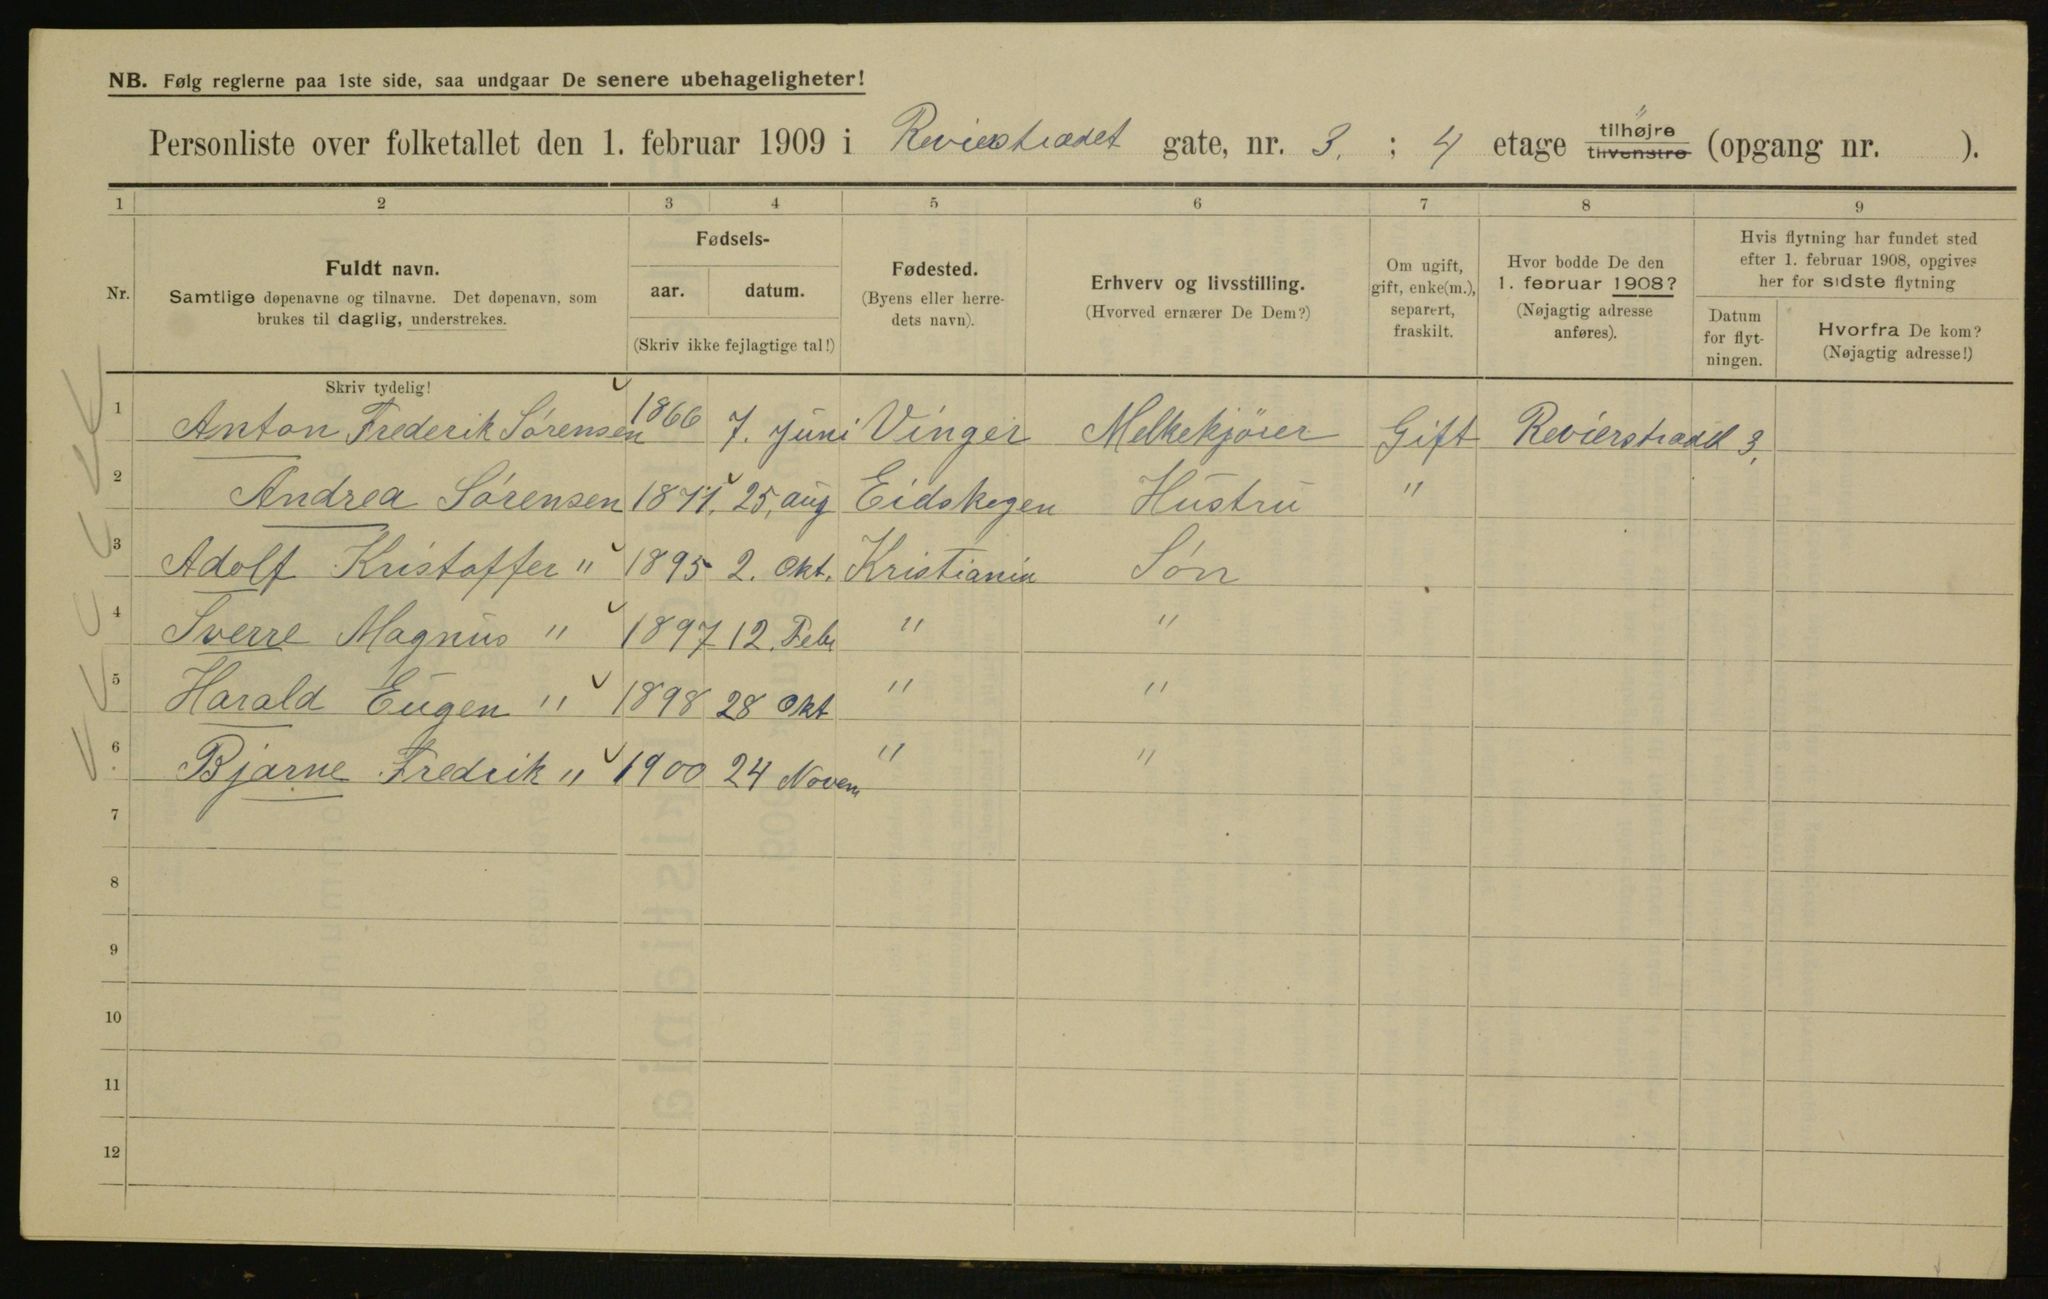 NB. Følg reglerne paa 1ste side, saa undgaar De senere ubehageligheter!
Personliste over folketallet den 1. februar 1909 i Revierstrædet gate, nr. 3. ; 4 etage tilhøjre tilvenstre (opgang nr. ).
1 2 3 4 5 6 7 8 9
Nr.
Fuldt navn.
Samtlige døpenavne og tilnavne. Det døpenavn, som
brukes til daglig, understrekes.
Skriv tydelig!
Fødsels-
aar. datum.
(Skriv ikke fejlagtige tal!)
Fødested.
(Byens eller herre-
dets navn).
Erhverv og livsstilling.
(Hvorved ernærer De Dem?)
Om ugift,
gift, enke(m.),
separert,
fraskilt.
Hvor bodde De den
1. februar 1908?
(Nøjagtig adresse
anføres).
Hvis flytning har fundet sted
efter 1. februar 1908, opgives
her for sidste flytning
Datum
for flyt-
ningen.
Hvorfra De kom?
(Nøjagtig adresse!)
1 Anton Frederik Sørensen 1866 7. juni Vinger Melkekjører Gift Revierstrædet 3,
2 Andrea Sørensen 1871. 25, aug Eidskogen Hustru "
3 Adolf Kristoffer " 1895 2. Okt. Kristiania Søn
4 Sverre Magnus " 1897 12. Febr " "
5 Harald Eugen " 1898 28 Okt " "
6 Bjarne Fredrik " 1900 24 Novem " "
7
8
9
10
11
12